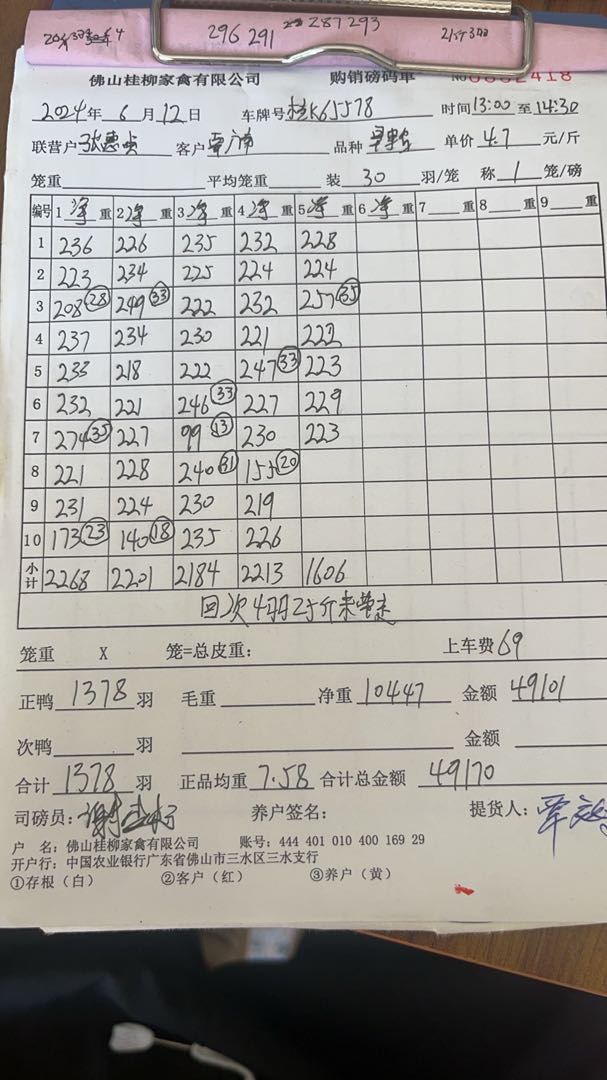 296 291 287 293
佛山桂柳家禽有限公司 购销磅码单 No 0002418
2024年 6 月 12 日 车牌号 桂K65578 时间 13:00 至 14:30
联营户 张惠贞 客户 品种 单价 4.7 元/斤
笼重 平均笼重 装 30 羽/笼 称 1 笼/磅
编号 1 净 重 2 净 重 3 净 重 4 净 重 5 净 重 6 净 重 7 重 8 重 9 重
1 236 226 235 232 228
2 223 234 225 224 224
3 208 (28) 249 (33) 222 232 257 (35)
4 237 234 230 221 222
5 233 218 222 247 (33) 223
6 232 221 246 (33) 227 229
7 274 (35) 227 99 (13) 230 223
8 221 228 240 (31) 155 (20)
9 231 224 230 219
10 173 (23) 140 (18) 235 226
小计 2268 2201 2184 2213 1606
回次4羽25斤未带走
笼重 X 笼=总皮重： 上车费 69
正鸭 1378 羽 毛重 净重 10447 金额 49101
次鸭 羽 金额
合计 1378 羽 正品均重 7.58 合计总金额 49170
司磅员： 养户签名： 提货人：
户 名：佛山桂柳家禽有限公司 账号：444 401 010 400 169 29
开户行：中国农业银行广东省佛山市三水区三水支行
①存根（白） ②客户（红） ③养户（黄）